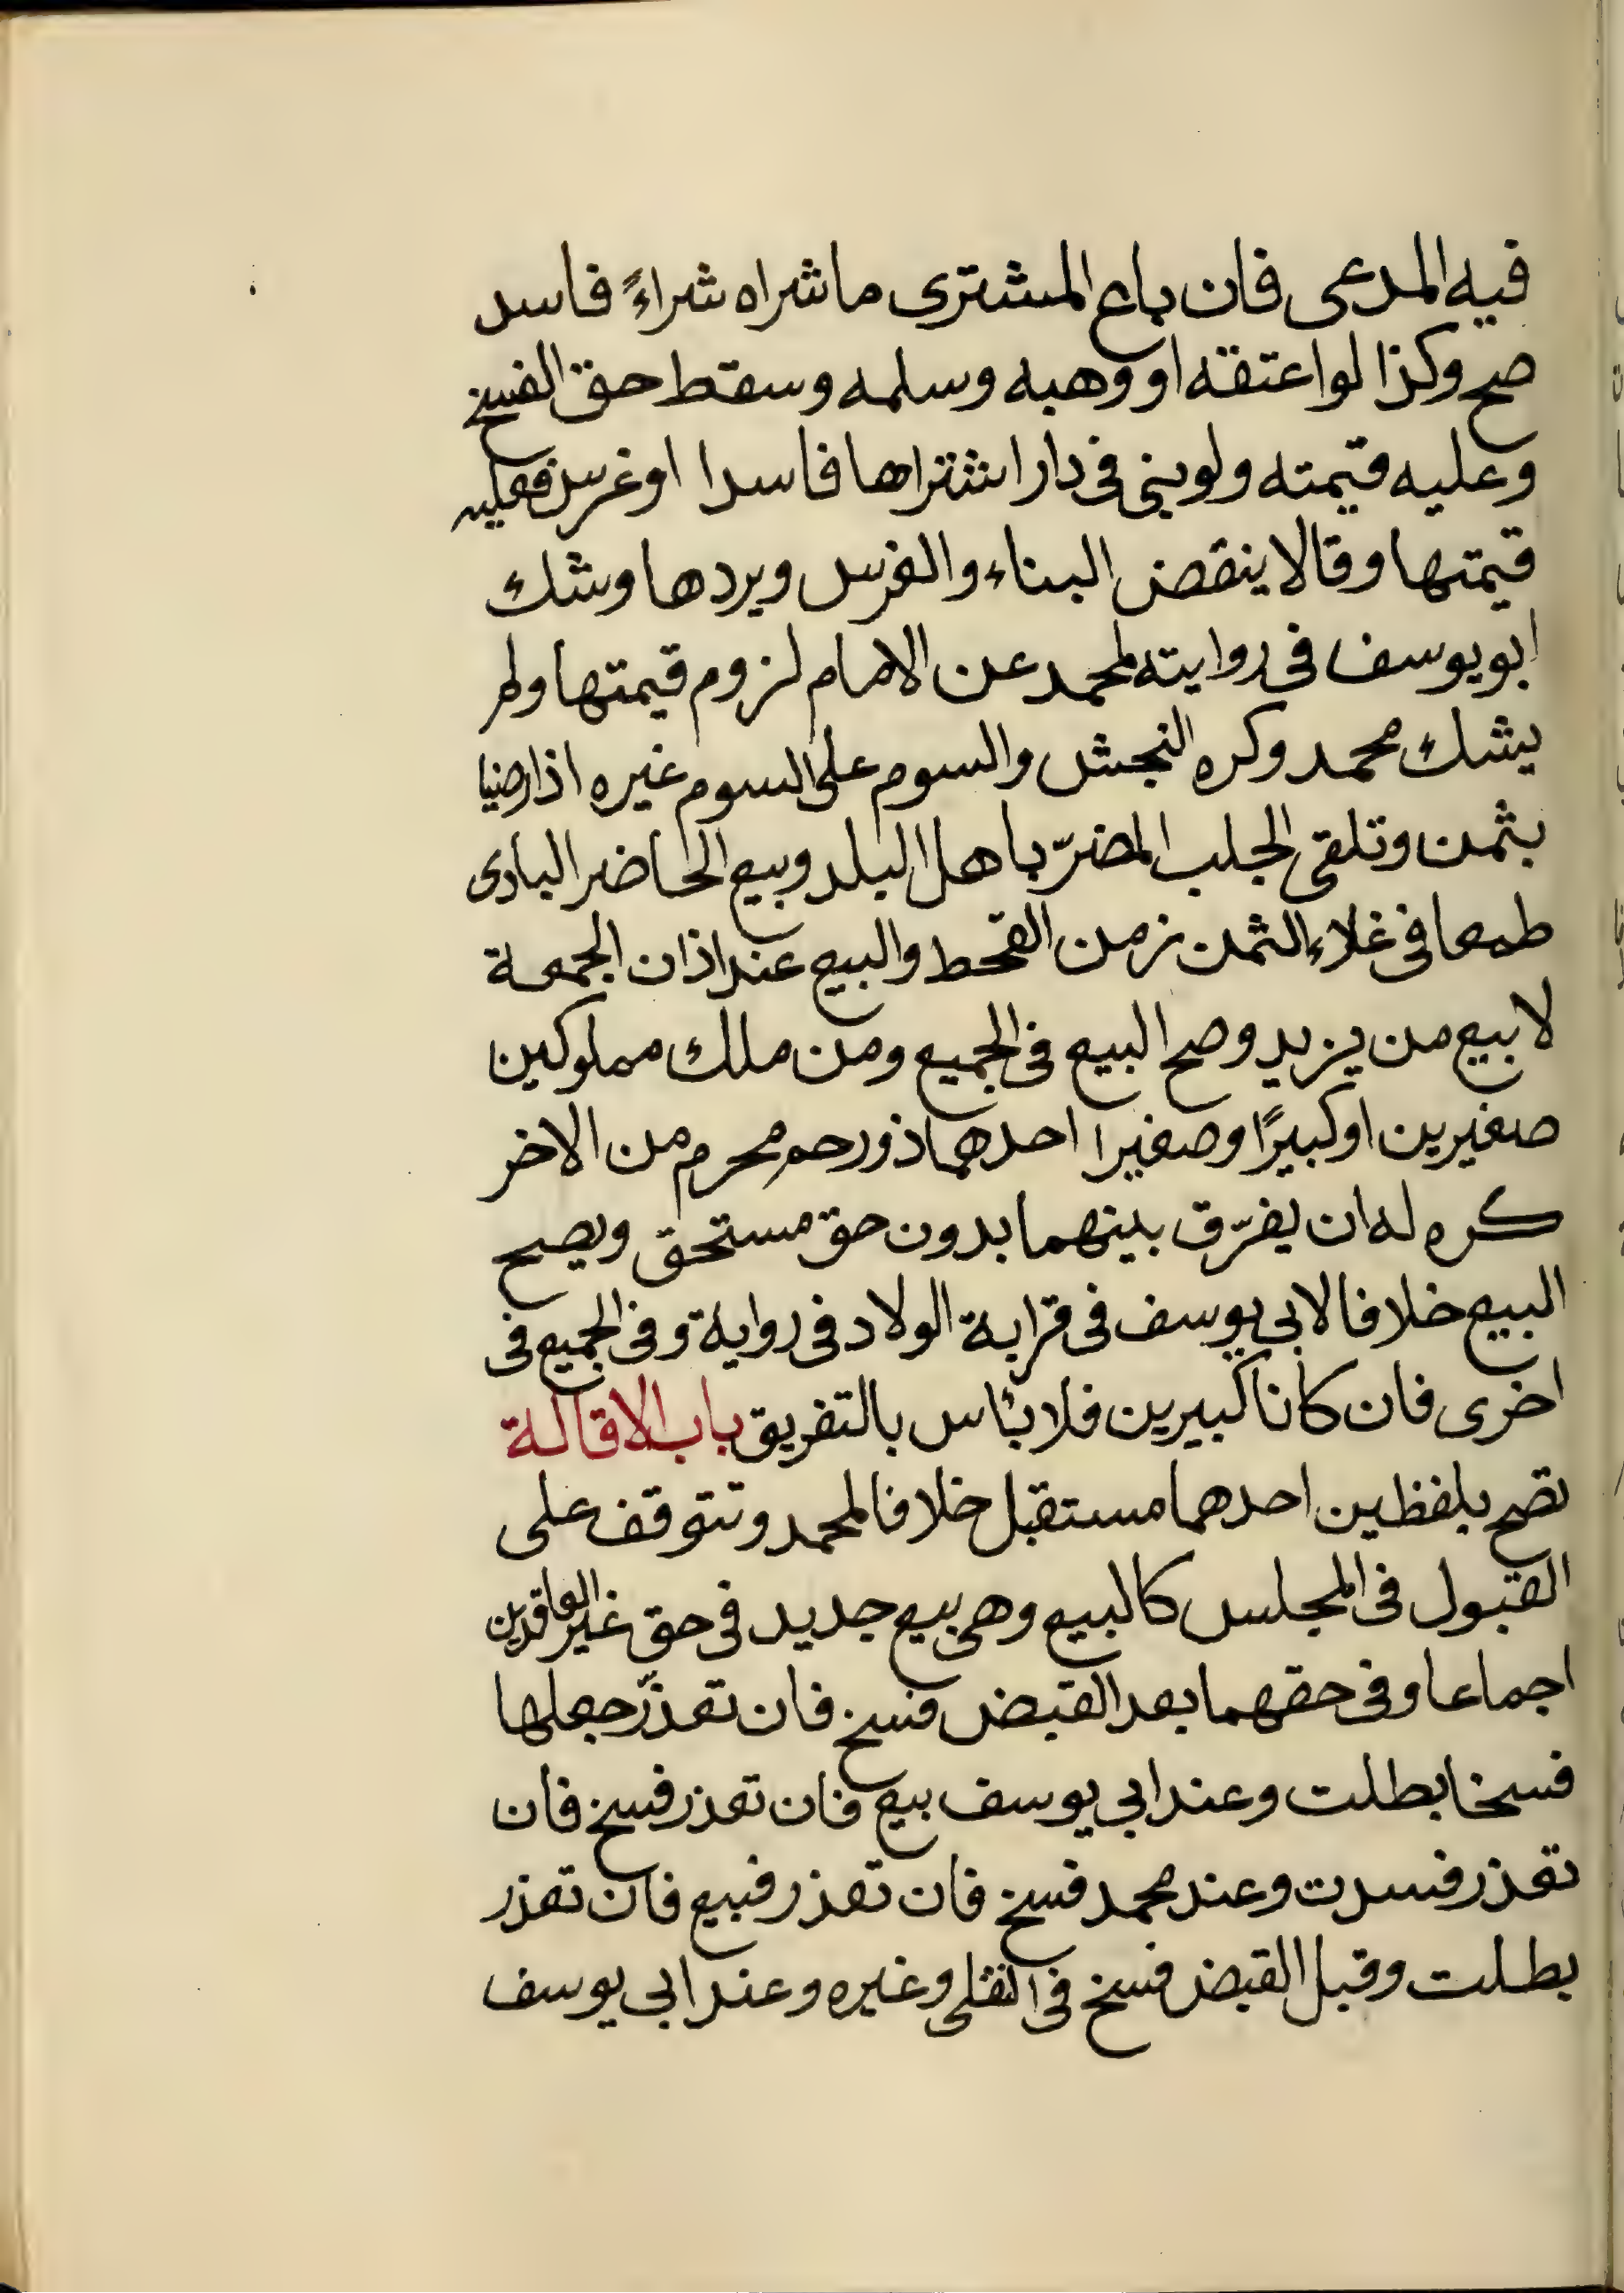 فيه المدعى فان باع المشترى ما شراه شراءً فاسد
صح وكذا لو اعتقه او وهبه وسلمه وسقط حق الفسخ
وعليه قيمته ولو بنى فى دار اشتراها فاسدا او غرس فعليه
قيمتها وقالا ينقض البناء والغرس ويردها وشك
ابو يوسف فى روايته لمحمد عن الامام لزوم قيمتها ولم
يشك محمد وكره النجش والسوم على السوم غيره اذا رضيا
بثمن وتلقى الجلب المضرّ باهل البلد وبيع الحاضر البادى
طمعا فى غلاء الثمن زمن القحط والبيع عند اذان الجمعة
لا بيع من يزيد وصح البيع فى الجميع ومن ملك مملوكين
صغيرين او كبيرًا وصغيرا احدهما ذو رحم محرم من الاخر
كره له ان يفرّق بينهما بدون حق مستحق ويصح
البيع خلافا لابى يوسف فى قرابة الولاد فى رواية وفى الجميع فى
اخرى فان كانا كبيرين فلا بئاس بالتفريق باب الاقالة
تصح بلفظين احدهما مستقبل خلافا لمحمد وتتوقف على
القبول فى المجلس كالبيع وهى بيع جديد فى حق غير العاقدين
اجماعا وفى حقهما بعد القبض فسخ فان تعذّر جعلها
فسخا بطلت وعند ابي يوسف بيع فان تعذر فسخ فان
تعذر فسدت وعند محمد فسخ فان تعذر فبيع فان تعذر
بطلت وقبل القبض فسخ فى النقلى وغيره وعند ابى يوسف